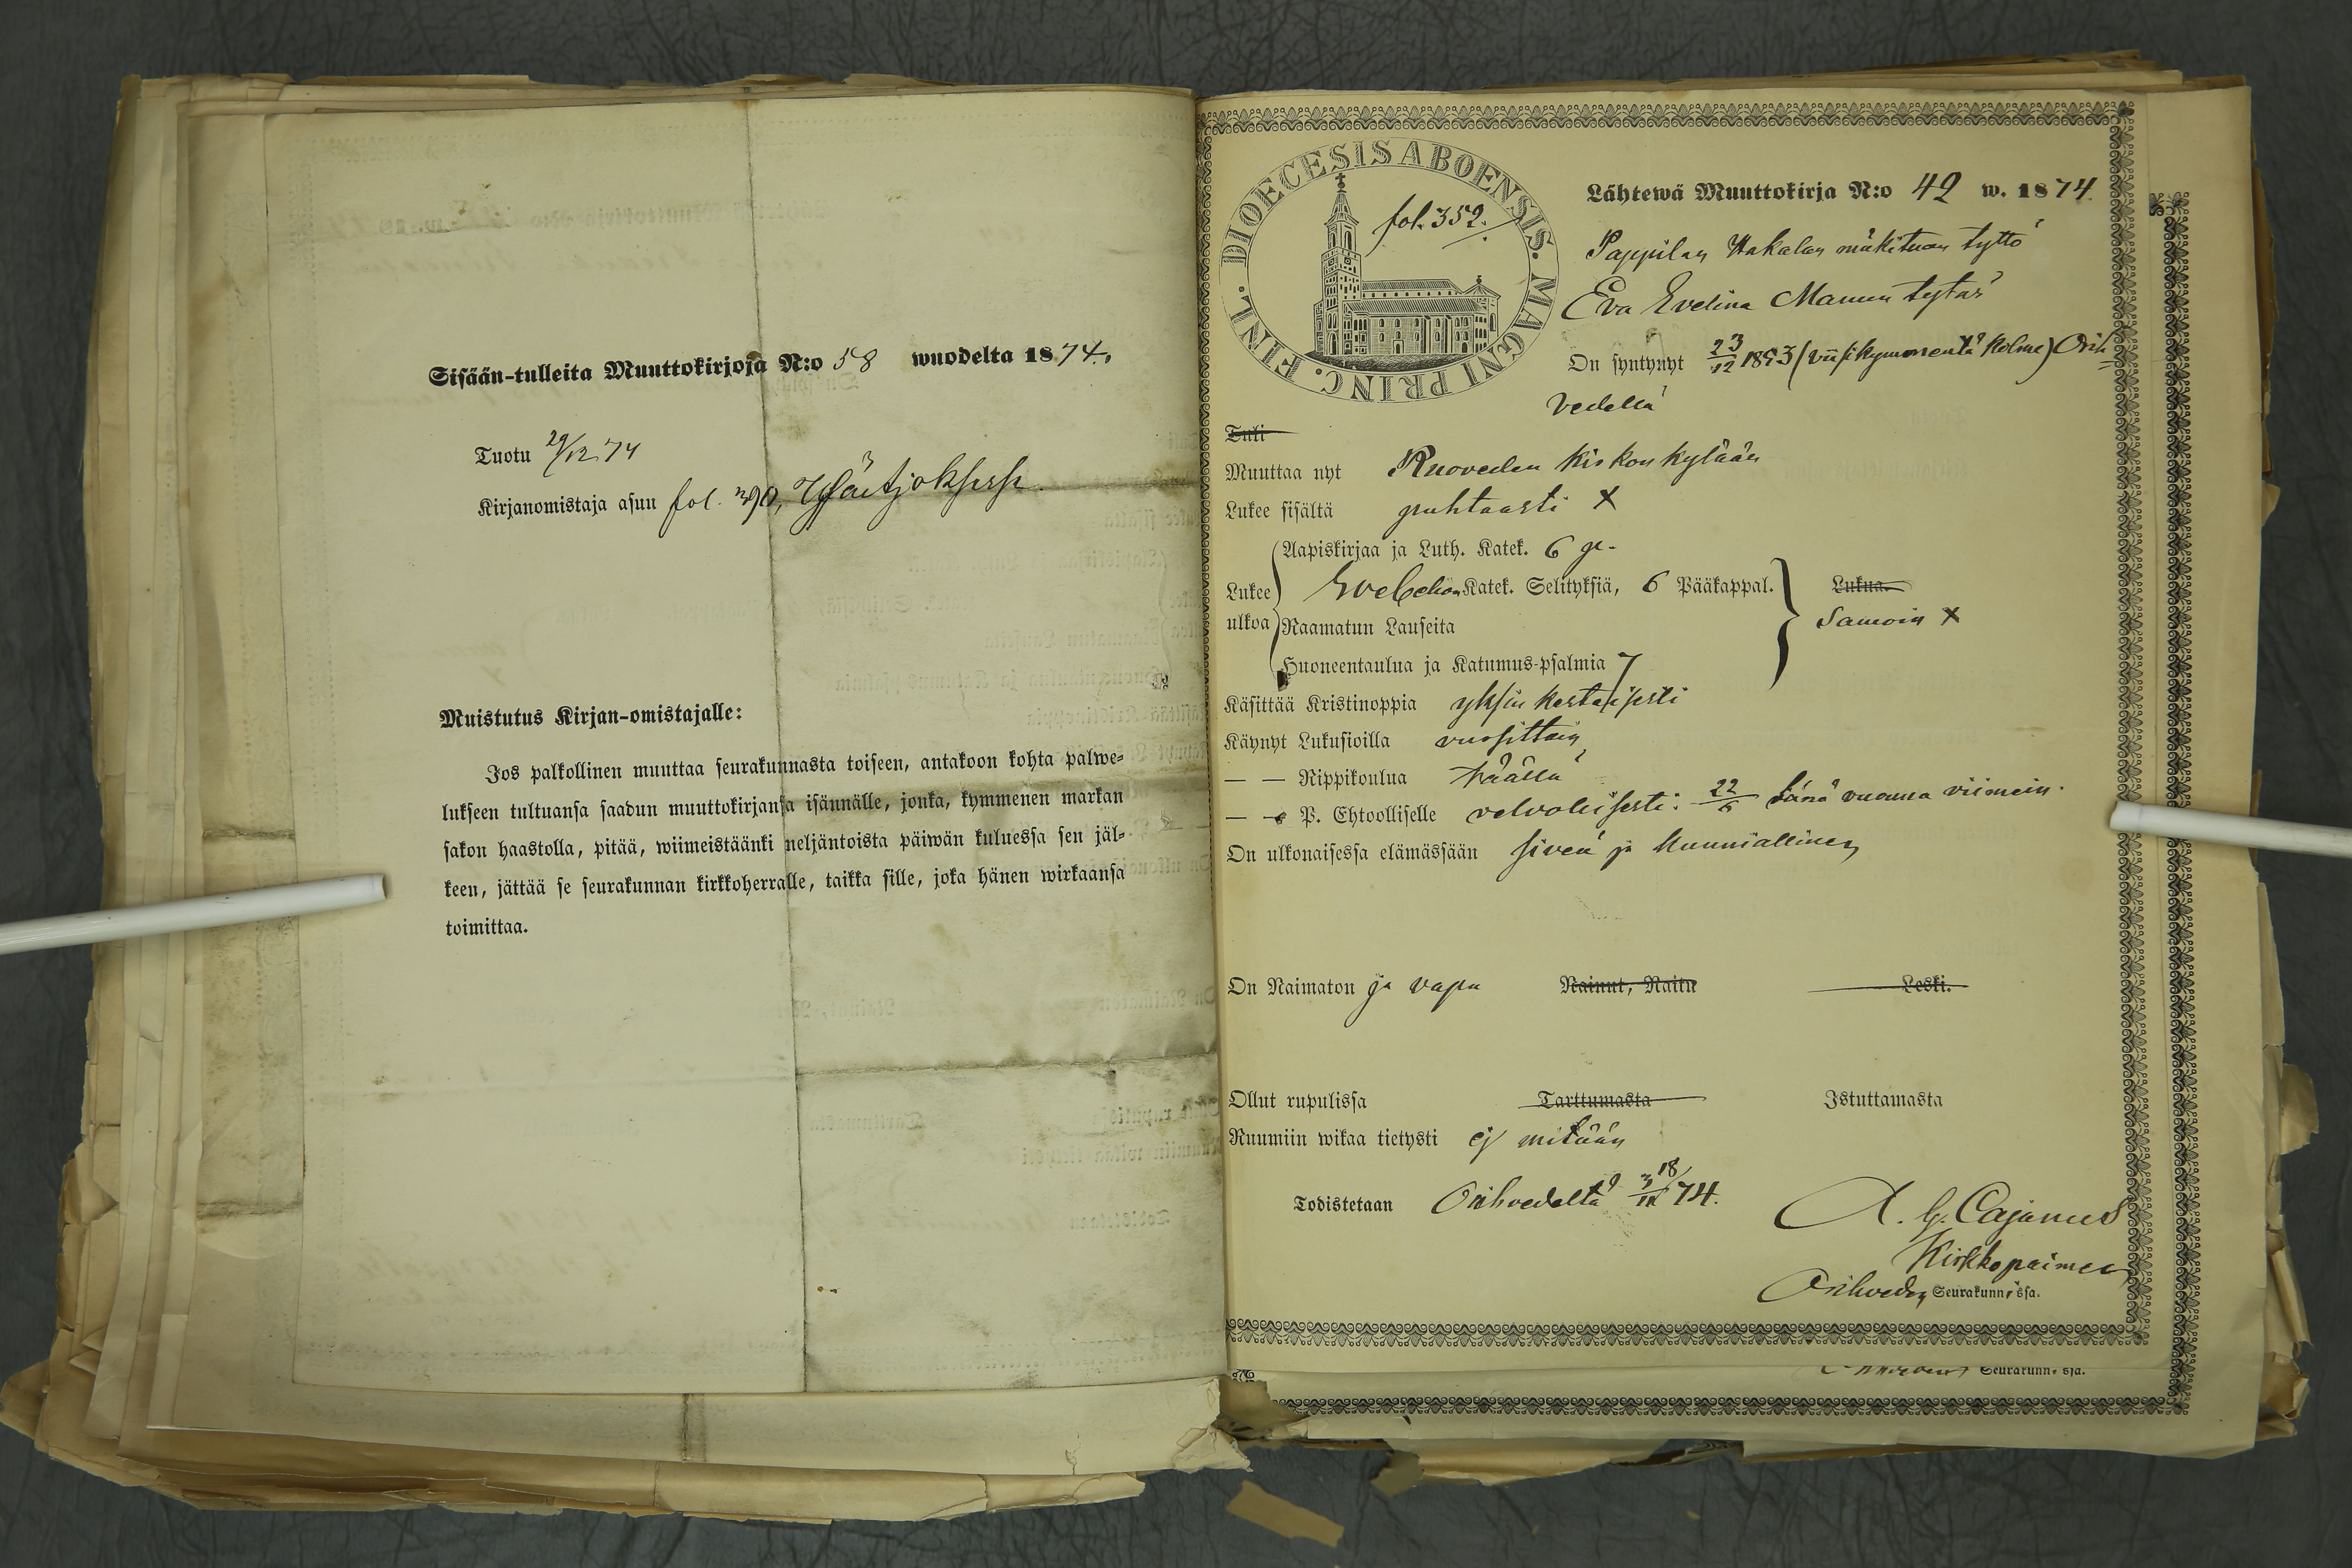 Sisään-tulleita Muuttokirjoja N:o 58 wuodelta 1874.
Tuotu 29/12 74
Kirjanomistaja asuu fol. 390,
Muistutus Kirjan-omistajalle:
Jos palkollinen muuttaa seurakunnasta toiseen, antakoon kohta palwe-
lukseen tultuansa saadun muuttokirjansa isännälle, jonka, kymmenen markan
sakon haastolla, pitää, wiimeistäänki neljäntoista päiwän kuluessa sen jäl-
keen, jättää se seurakunnan kirkkoherralle, taikka sille, joka hänen wirkaansa
toimittaa.
DIOECESIS ABOENSIS. MAGNI PRINC. FINL.
fol. 352.
Lähtewä Muuttokirja N:o 42 w. 1874.
Pappilan Hakalan mäkituan tyttö
Eva Evelina Manun tytär
On syntynyt 23/12 1853 (viisikymmentä kolme) Orih-
vedellä
Tuli
Muuttaa nyt Ruoveden Kiskon kylään
Lukee sisältä puhtaasti X
Aapiskirjaa ja Luth. Katek. 6 p.
Lukee Katek. Selityksiä, 6 Pääkappal. Lukua.
ulkoa Raamatun Lauseita Samoin X
Huoneentaulua ja Katumus-psalmia 7
Käsittää Kristinoppia yksinkertaisesti
Käynyt Lukusioilla vuosittain
— — Rippikoulua täällä
— — P. Ehtoolliselle velvolisesti: 22/6 tänä vuonna viimein.
On ulkonaisessa elämässään siveä ja kunniallinen
On Naimaton ja vapa Nainut, Naitu Leski.
Ollut rupulissa Tarttumasta Istuttamasta
Ruumiin wikaa tietysti ej mitään
Todistetaan Orihvedeltä 18/12 74.
A. G. Cajanus
Kirkkopaimen
Orihveden Seurakunn. ssa.
Seurakunn. ssa.